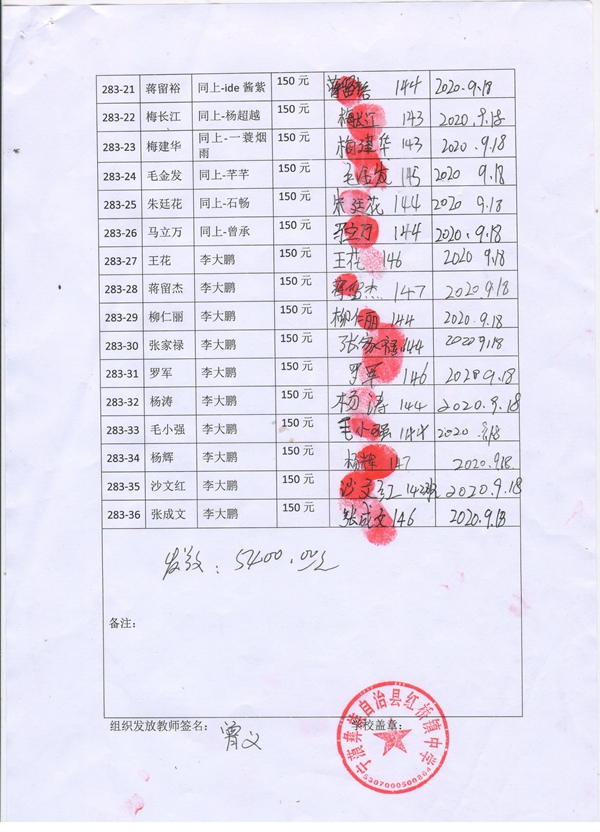 283-21 蒋留裕 同上-ide 酱紫 150 元 蒋留裕 144 2020.9.18
283-22 梅长江 同上-杨超越 150 元 梅长江 143 2020.9.18
283-23 梅建华 同上-一蓑烟雨 150 元 梅建华 143 2020.9.18
283-24 毛金发 同上-芊芊 150 元 毛金发 145 2020 9.18
283-25 朱廷花 同上-石畅 150 元 朱廷花 144 2020 9.18
283-26 马立万 同上-曾承 150 元 马立万 144 2020.9.18
283-27 王花 李大鹏 150 元 王花 146 2020 9.18
283-28 蒋留杰 李大鹏 150 元 蒋留杰 147 2020.9.18
283-29 柳仁丽 李大鹏 150 元 柳仁丽 144 2020.9.18
283-30 张家禄 李大鹏 150 元 张家禄 144 2020 9.18
283-31 罗军 李大鹏 150 元 罗军 146 2020 9.18
283-32 杨涛 李大鹏 150 元 杨涛 144 2020.9.18
283-33 毛小强 李大鹏 150 元 毛小强 144 2020 9.18
283-34 杨辉 李大鹏 150 元 杨辉 147 2020.9.18
283-35 沙文红 李大鹏 150 元 沙文红 142班 2020.9.18
283-36 张成文 李大鹏 150 元 张成文 146 2020.9.18
发放：5400.00元
备注：
组织发放教师签名： 曾文 学校盖章：
宁蒗彝族自治县红桥镇中学
5307000500864